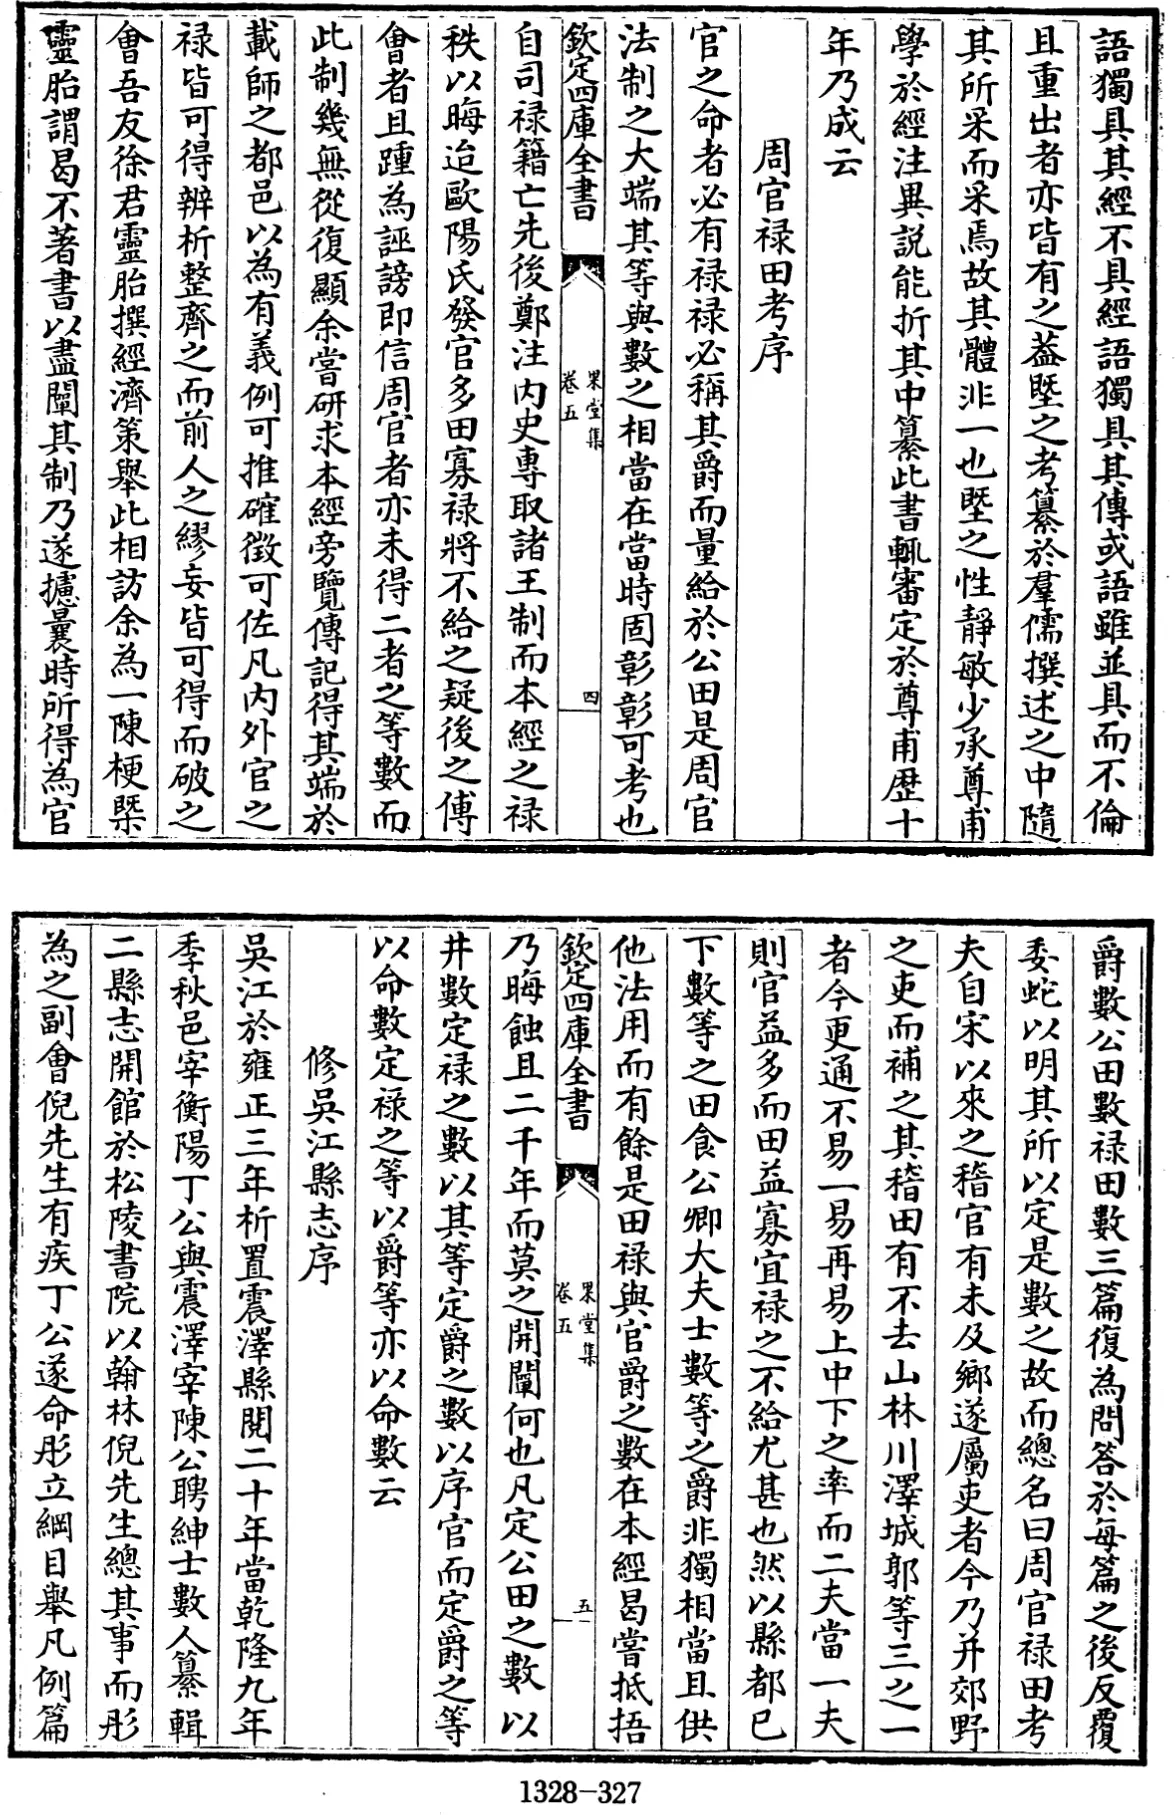 語獨具其經不具經語獨具其傳或語雖並具而不倫
且重出者亦皆有之葢塈之考纂於羣儒撰述之中隨
其所采而采焉故其體非一也塈之性静敏少承尊甫
學於經注異説能折其中纂此書輒審定於尊甫歴十
年乃成云
周官禄田考序
官之命者必有禄禄必稱其爵而量給於公田是周官
法制之大端其等與數之相當在當時固彰彰可考也
欽定四庫全書
果堂集
卷五
四
自司禄籍亡先後鄭注内史專取諸王制而本經之禄
秩以晦迨歐陽氏發官多田寡禄將不給之疑後之傅
會者且踵為誣謗即信周官者亦未得二者之等數而
此制幾無從復顯余嘗研求本經旁覽傳記得其端於
載師之都邑以為有義例可推確徵可佐凡内外官之
禄皆可得辨析整齊之而前人之繆妄皆可得而破之
會吾友徐君靈胎撰經濟策舉此相訪余為一陳梗槩
靈胎謂曷不著書以盡闡其制乃遂攄曩時所得為官
爵數公田數禄田數三篇復為問答於每篇之後反覆
委蛇以明其所以定是數之故而總名曰周官禄田考
夫自宋以來之稽官有未及鄉遂屬吏者今乃并郊野
之吏而補之其稽田有不去山林川澤城郭等三之一
者今更通不易一易再易上中下之率而二夫當一夫
則官益多而田益寡宜禄之不給尤甚也然以縣都已
下數等之田食公卿大夫士數等之爵非獨相當且供
他法用而有餘是田禄與官爵之數在本經曷嘗抵捂
欽定四庫全書
果堂集
卷五
五
乃晦蝕且二千年而莫之開闡何也凡定公田之數以
井數定禄之數以其等定爵之數以序官而定爵之等
以命數定禄之等以爵等亦以命數云
修吳江縣志序
吳江於雍正三年析置震澤縣閱二十年當乾隆九年
季秋邑宰衡陽丁公與震澤宰陳公聘紳士數人纂輯
二縣志開館於松陵書院以翰林倪先生總其事而彤
為之副會倪先生有疾丁公遂命彤立綱目舉凡例篇
1328-327